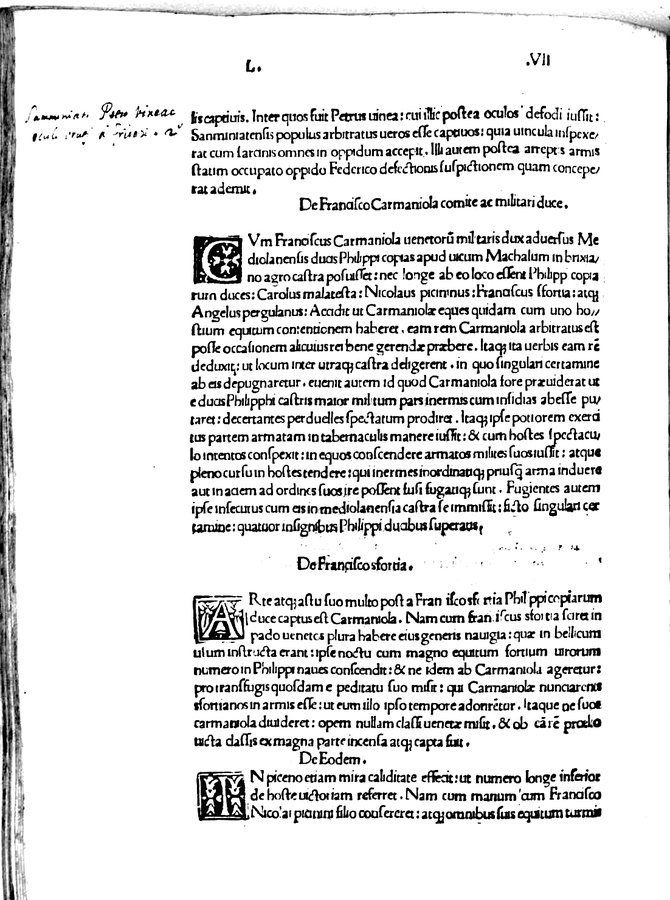 L.
.VII
Petro vineae
liscaptiuis. Inter quos fuit Petrus uinea: cui illic postea oculos defodi iussit:
Sanminiatensis populus arbitratus ueros esse captiuos: quia uincula inspexe/
rat cum sarcinis omnes in oppidum accepit. Illi autem postea arreptis armis
statim occupato oppido Federico defectionis suspictionem quam concepe/
rat ademit.
De Francisco Carmaniola comite ac militari duce.
CVm Franciscus Carmaniola uenetorū militaris dux aduersus Me
diolanensis duas Philippi copias apud uicum Machalum in brixia/
no agro castra posuisset: nec longe ab eo loco essent Philippi copia
rum duces: Carolus malatesta: Nicolaus picininus: Franciscus sfortia: atq;
Angelus pergulanus: Accidit ut Carmaniolæ eques quidam cum uno ho//
stium equitum contentionem haberet. eam rem Carmaniola arbitratus est
posse occasionem alicuius rei bene gerendæ præbere. Itaq; ita uerbis eam rē
deduxit: ut locum inter utraq; castra deligerent. in quo singulari certamine
ab eis depugnaretur. euenit autem id quod Carmaniola fore præuiderat ut
e duas Philipphi castris maior militum pars inermis cum insidias abesse pu/
taret: decertantes perduelles spectatum prodiret. Itaq; ipse potiorem exerci
tus partem armatam in tabernaculis manere iussit: & cum hostes spectacu/
lo intentos conspexit: in equos conscendere armatos milites suos iussit: atque
pleno cursu in hostes tendere: qui inermes inordinatiq; priusq̄ arma induere
aut in aciem ad ordines suos ire possent fusi fugatiq; sunt. Fugientes autem
ipse insecutus cum eis in mediolanensia castra se immisit: sicto singulari cer
tamine: quatuor insignibus Philippi ducibus superatis,
De Francisco sfortia.
ARte atq; astu suo multo post a Francisco sfortia Philippi copiarum
duce captus est Carmaniola. Nam cum franciscus sfortia sciret in
pado uenetos plura habere eius generis nauigia: quæ in bellicum
usum instructa erant: ipse noctu cum magno equitum fortium uirorum
numero in Philippi naues conscendit: & ne idem ab Carmaniola ageretur:
pro transfugis quosdam e peditatu suo misit: qui Carmaniolæ nunciarent
sfortianos in armis esse: ut eum illo ipso tempore adorirētur. Itaque ne suos
carmaniola diuideret: opem nullam classi uenetæ misit. & ob eā rē prælio
uicta classis ex magna parte incensa atq; capta fuit.
De Eodem.
IN piceno etiam mira caliditate effecit: ut numero longe inferior
de hoste uictoriam referret. Nam cum manum cum Francisco
Nicolai picinini filio consereret: atq; omnibus suis equitum turmis